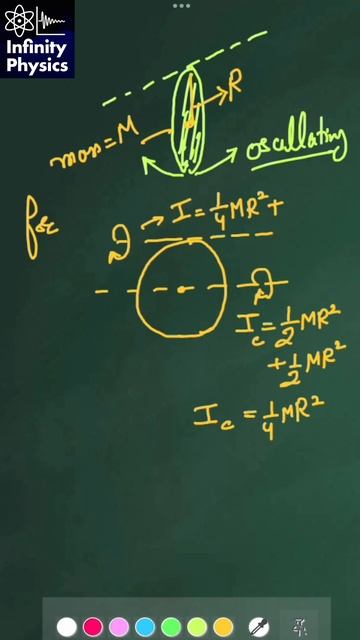 Infinity
Physics
R
mass = M
oscillating
for
I = 1/4 MR² +
I_c = 1/2 MR²
+ 1/2 MR²
I_c = 1/4 MR²